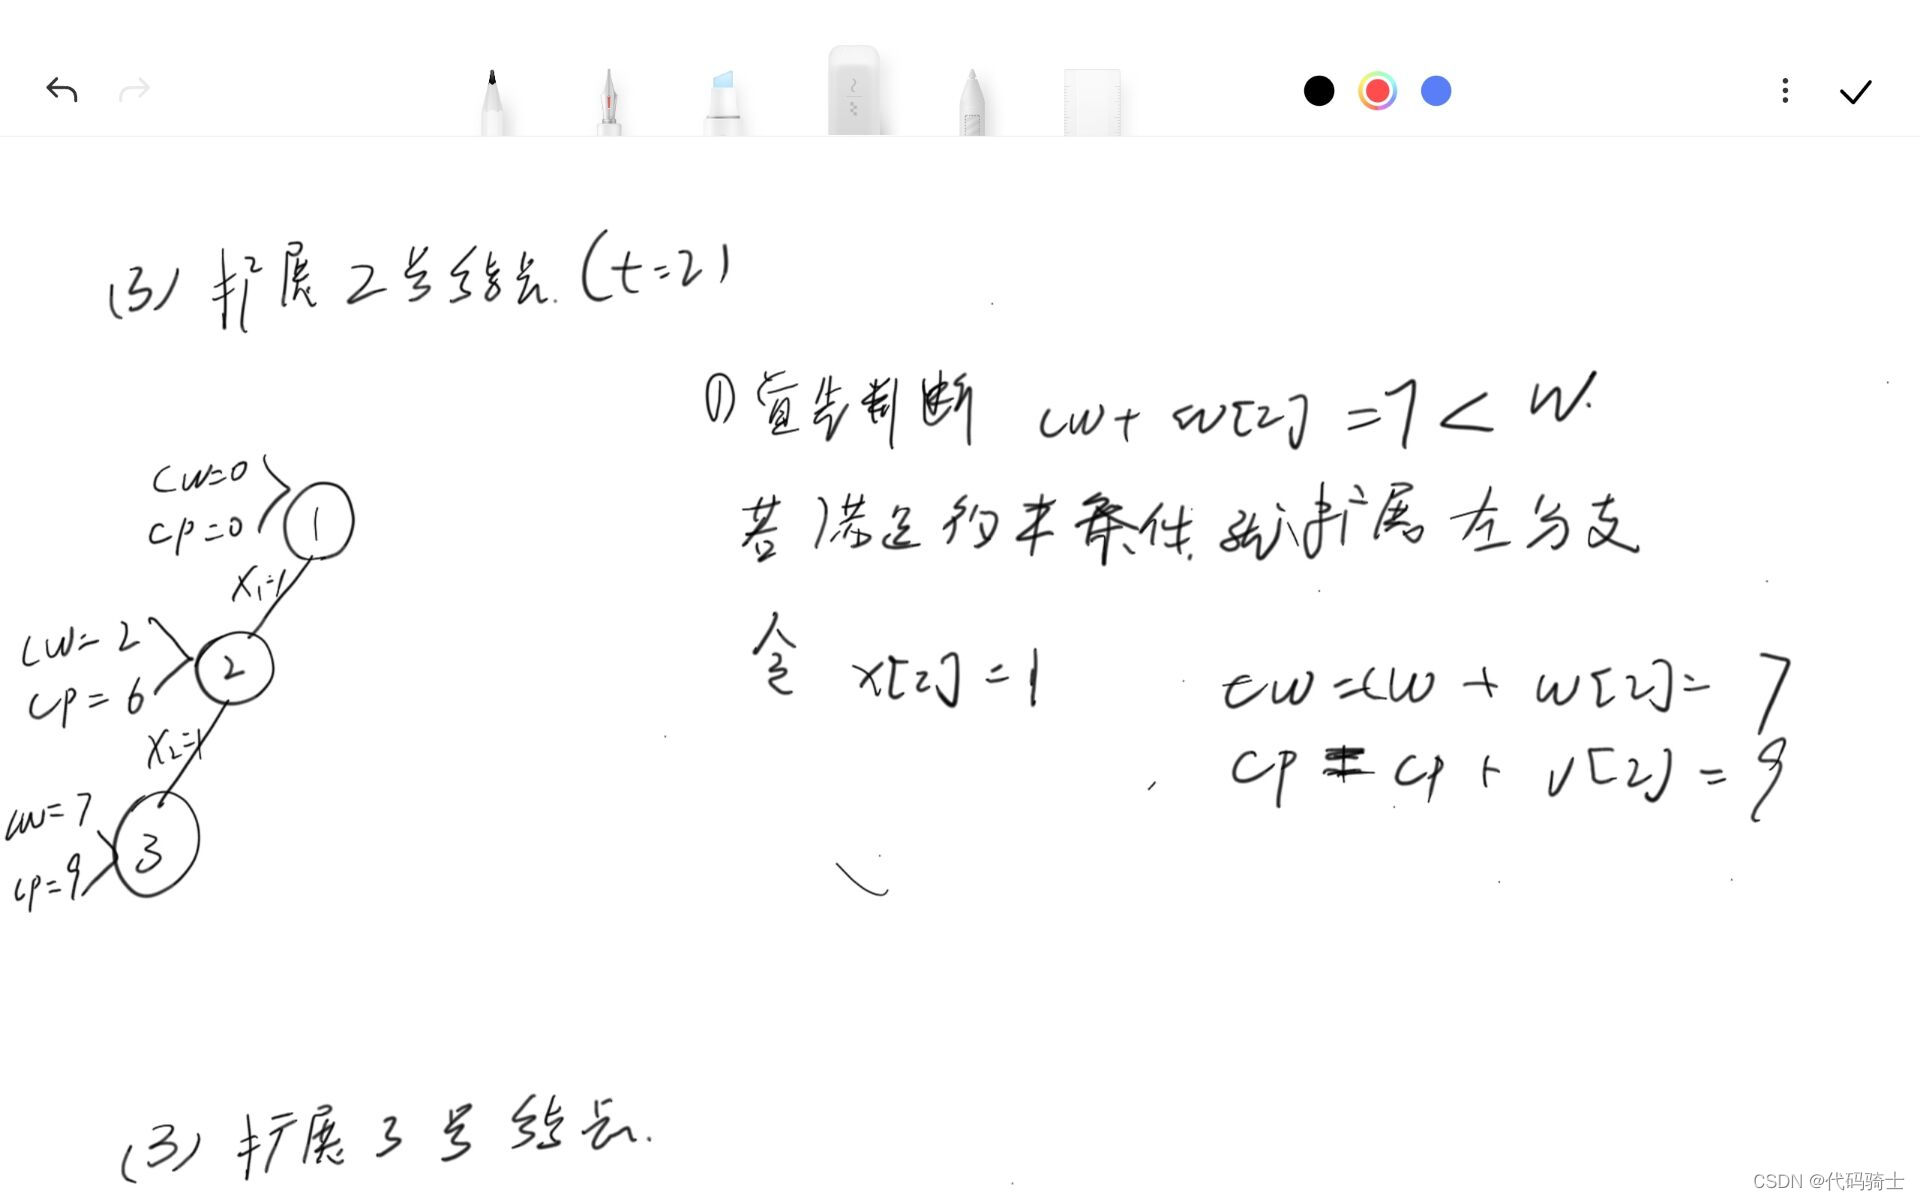 (3) 扩展2号结点. (t=2)
① 首先判断 cw + w[2] = 7 < W.
若满足约束条件, 就扩展左分支
令 x[2] = 1 cw = cw + w[2] = 7
cp = cp + v[2] = 9
cw=0
cp=0
1
x₁=1
cw=2
cp=6
2
x₂=1
cw=7
cp=9
3
(3) 扩展3号结点.
CSDN @代码骑士